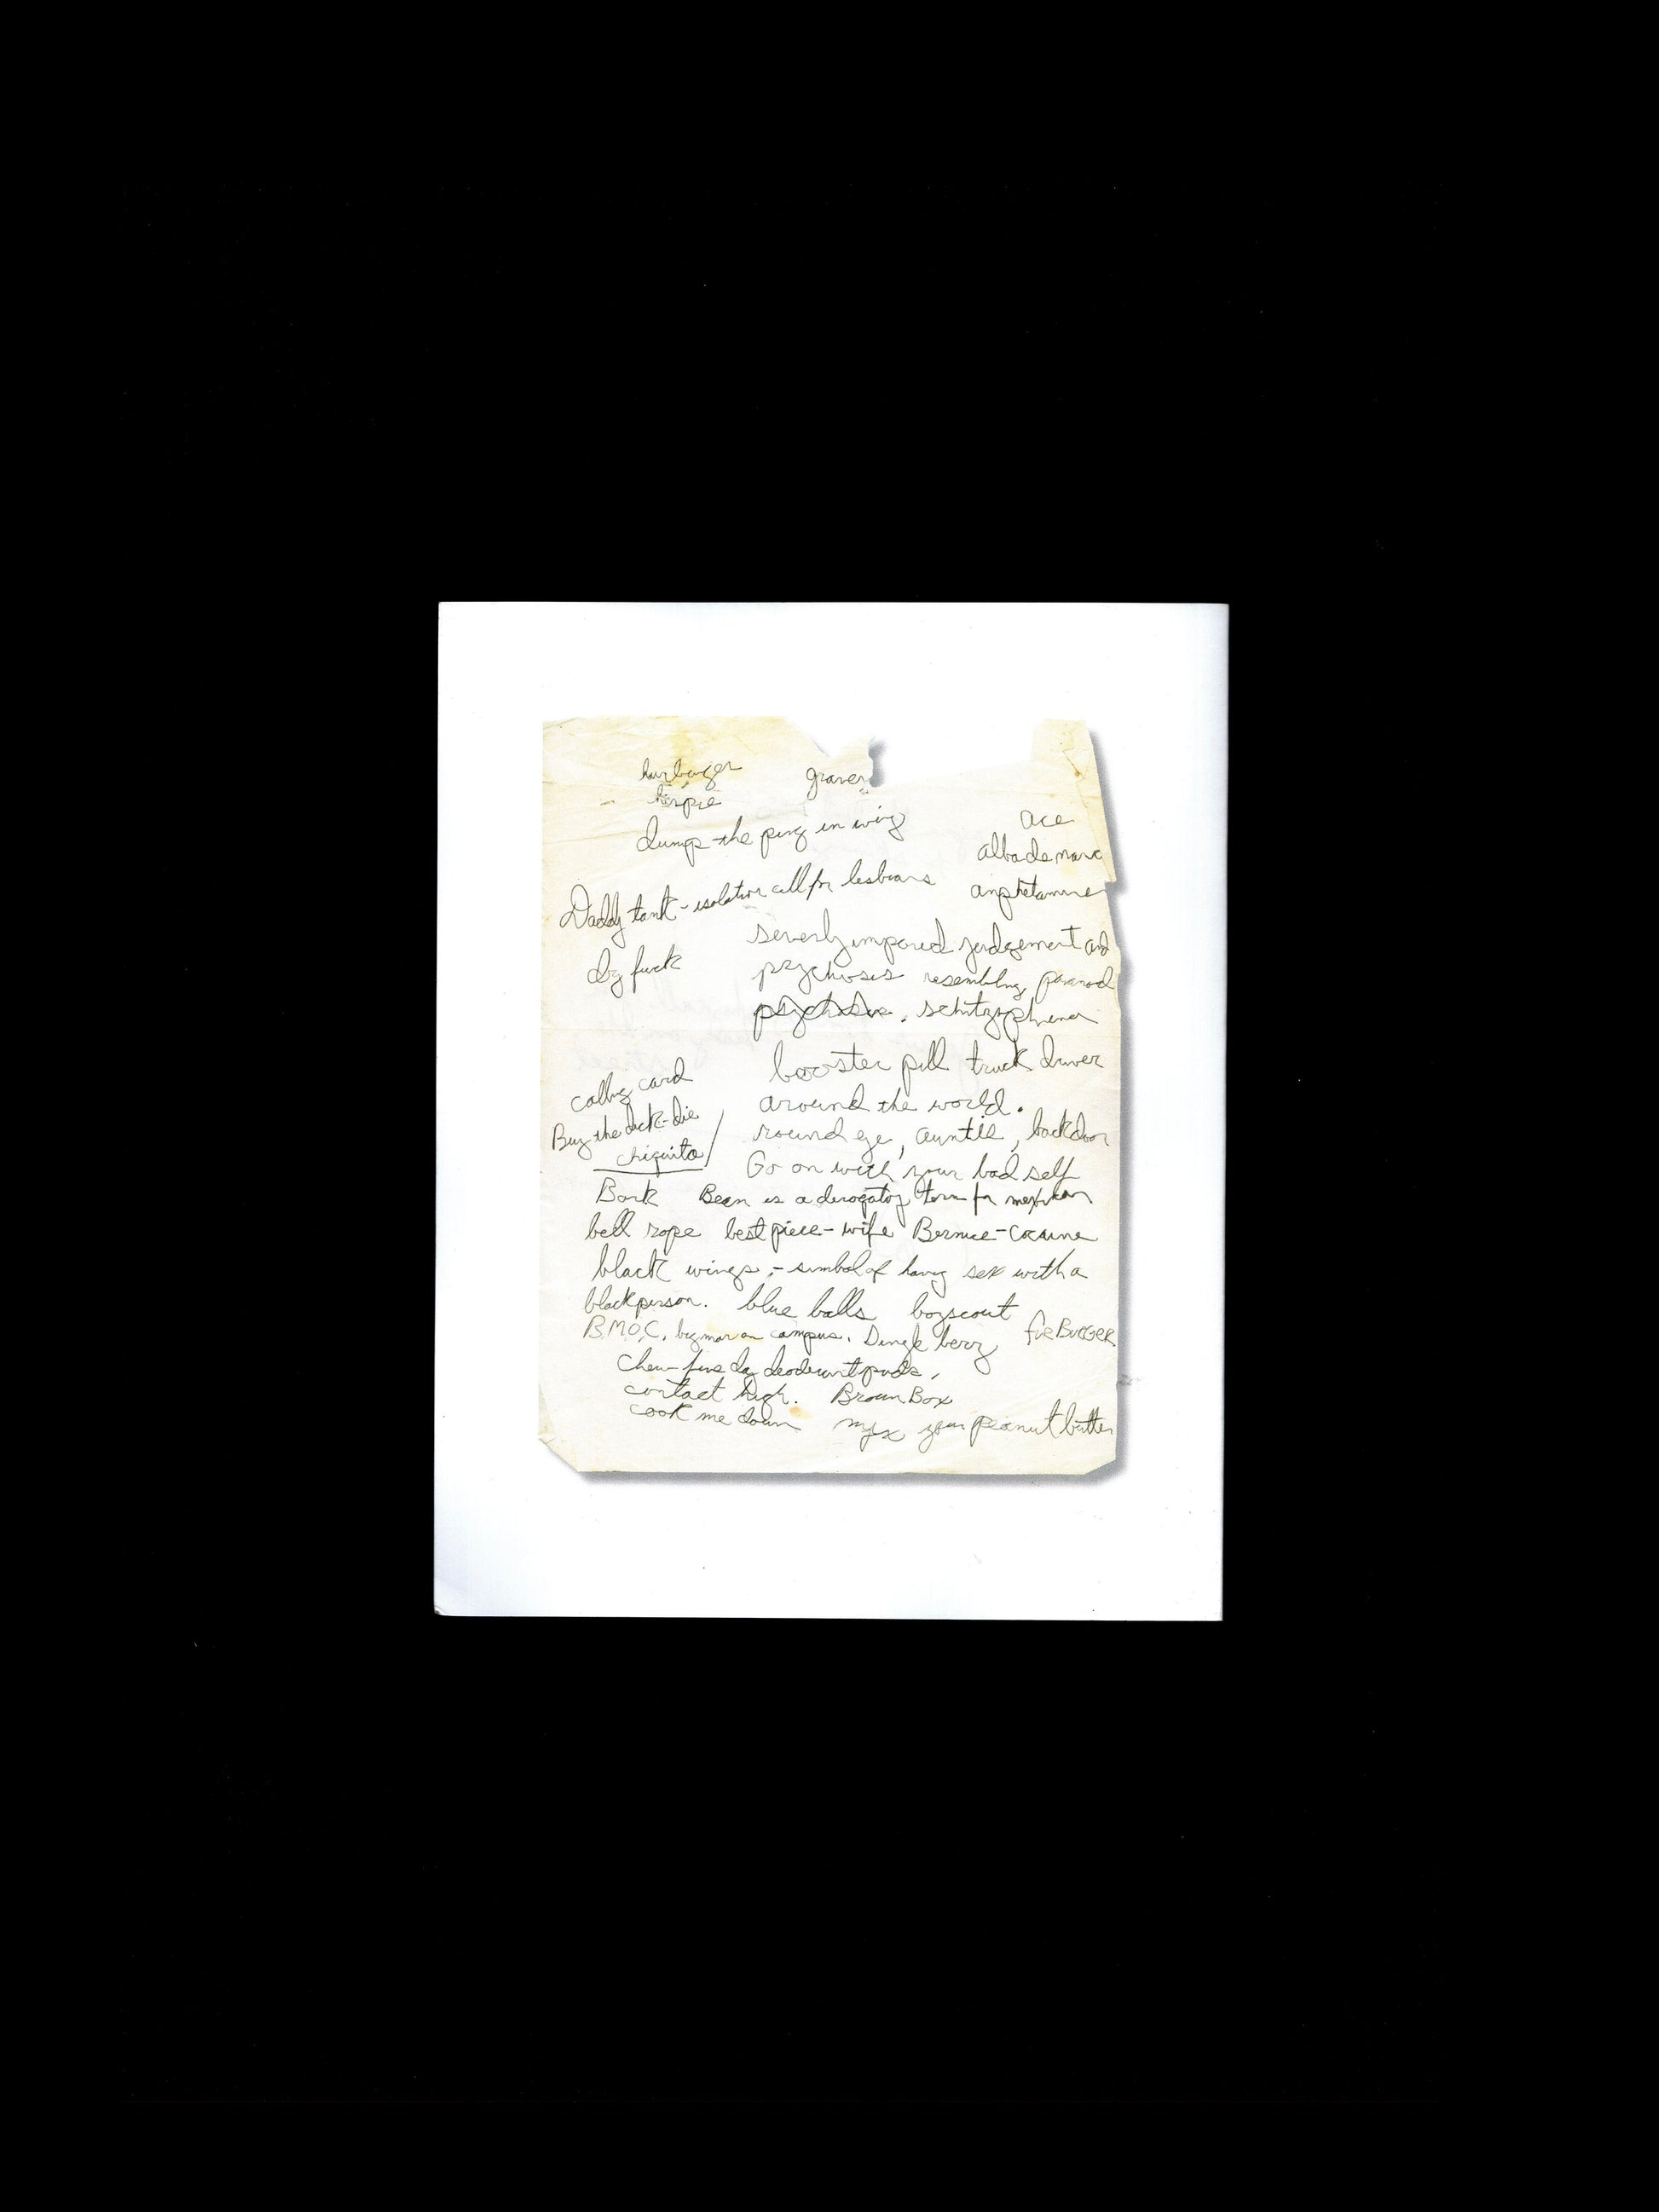 harbinger graver
herpie
dump the puzy in wing
ace
albademarc
Daddy tank - isolation cell for lesbians
amphetamine
severly impared judgement and
dry fuck
psychosis resembling paranod
schitzophrena
booster pill truck driver
calling card
around the world.
Buy the dick - die
round eye, auntie, backdoor
chiquita
Go on with your bad self
Bork Bean is a derogatoy term for mexican
bell rope best piece - wife Bernice - Cocaine
black wings - simbol of having sex with a
black person. blue balls boyscout
B.M.O.C. big man on campus. Dingle berry furBurger
chew - five day deoderant pads,
contact high. Brown Box
cook me down mix your peanut butter